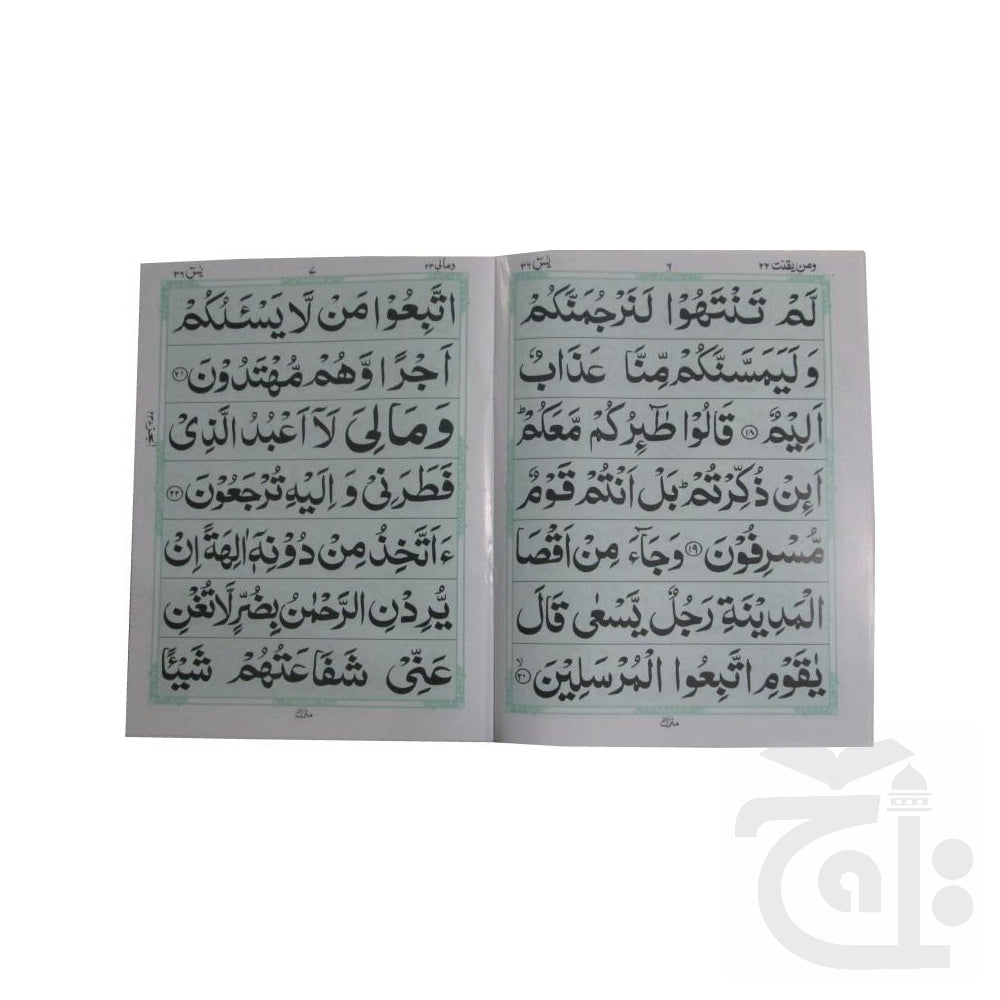 ومن یقنت ۲۲
۶
یٰسٓ ۳۶
لَّمْ تَنْتَهُوْا لَنَرْجُمَنَّكُمْ
وَلَيَمَسَّنَّكُمْ مِّنَّا عَذَابٌ
اَلِيْمٌ ⑱ قَالُوْا طَآئِرُكُمْ مَّعَكُمْ ؕ
اَئِنْ ذُكِّرْتُمْ ؕ بَلْ اَنْتُمْ قَوْمٌ
مُّسْرِفُوْنَ ⑲ وَجَآءَ مِنْ اَقْصَا
الْمَدِيْنَةِ رَجُلٌ يَّسْعٰى قَالَ
يٰقَوْمِ اتَّبِعُوا الْمُرْسَلِيْنَ ⑳ ۙ
ومالی ۲۳
۷
یٰسٓ ۳۶
اتَّبِعُوْا مَنْ لَّا يَسْـَٔلُكُمْ
اَجْرًا وَّهُمْ مُّهْتَدُوْنَ ㉑
وَمَا لِيَ لَآ اَعْبُدُ الَّذِيْ
فَطَرَنِيْ وَاِلَيْهِ تُرْجَعُوْنَ ㉒
ءَاَتَّخِذُ مِنْ دُوْنِهٖٓ اٰلِهَةً اِنْ
يُّرِدْنِ الرَّحْمٰنُ بِضُرٍّ لَّا تُغْنِ
عَنِّيْ شَفَاعَتُهُمْ شَيْـًٔا